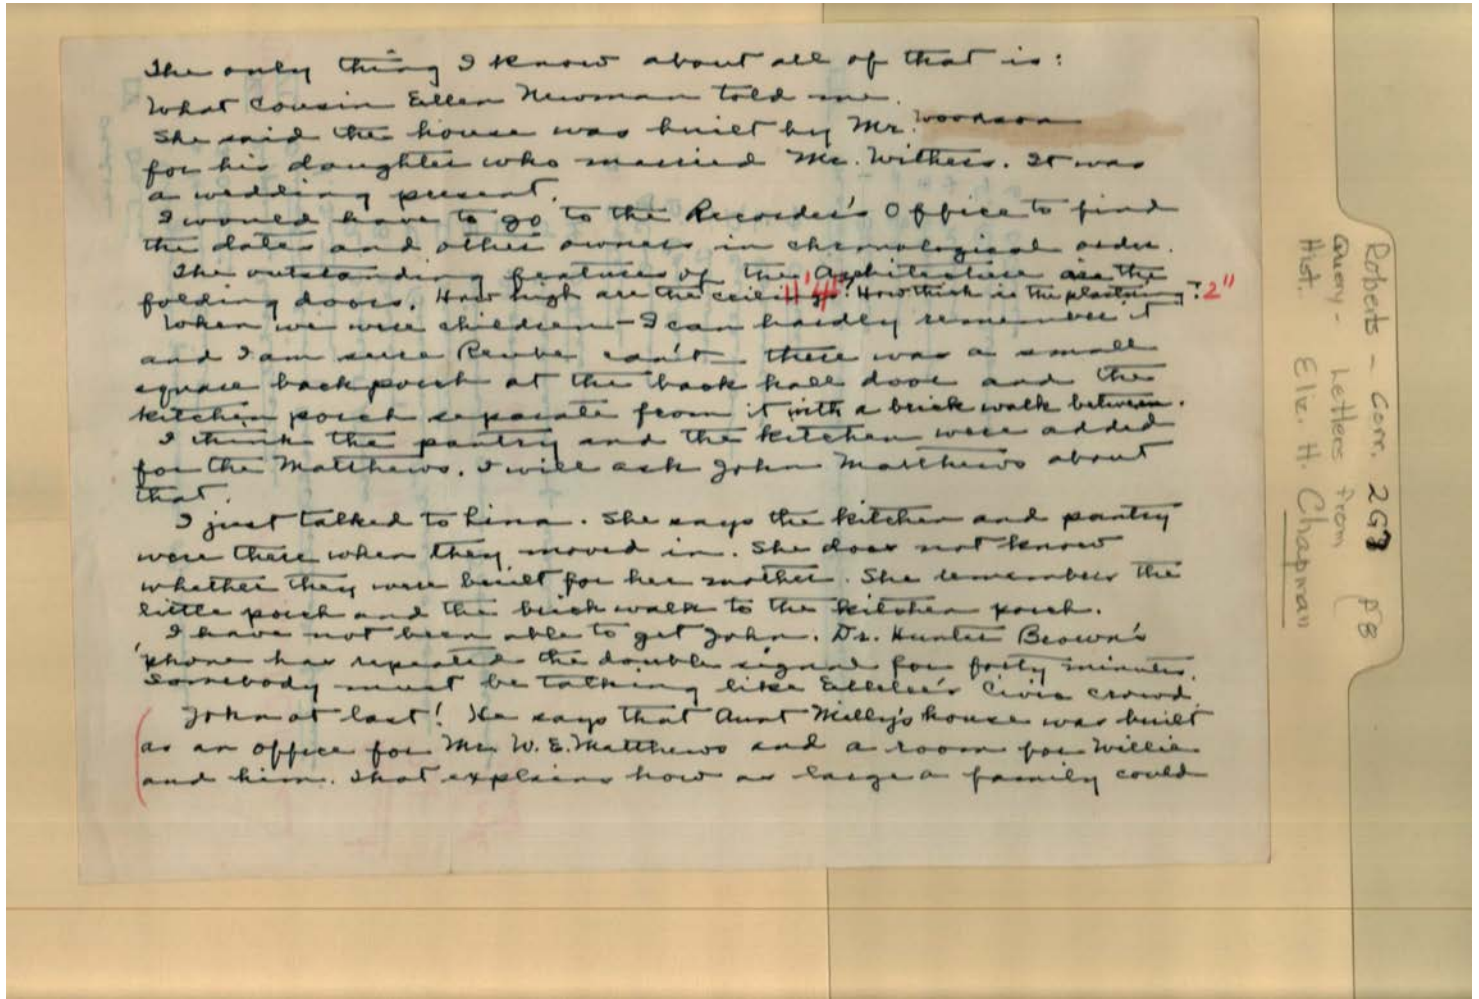 The only thing I know about all of that is:
What Cousin Ellen Newman told me.
She said the house was built by Mr. Woodson
for his daughter who married Mr. Withers. It was
a wedding present.
I would have to go to the Recorder's Office to find
the dates and other owners in chronological order.
The outstanding features of the Architecture are the
folding doors. How high are the ceilings? 11'4" How thick is the plastering? 2"
When we were children - I can hardly remember it
and I am sure Reube can't - there was a small
square back porch at the back hall door and the
kitchen porch separate from it with a brick walk between.
I think the pantry and the kitchen were added
for the Matthews. I will ask John Matthews about
that.
I just talked to Lina. She says the kitchen and pantry
were there when they moved in. She does not know
whether they were built for her mother. She remembers the
little porch and the brick walk to the kitchen porch.
I have not been able to get John. Dr. Hunter Brown's
'phone has repeated the double signal for forty minutes.
Somebody must be talking like Ellelee's Civic crowd.
John at last! He says that Aunt Milly's house was built
as an office for Mr. W. E. Matthews and a room for Willie
and him. That explains how as large a family could
Roberts - Corr. 2G7 P58
Query - Letters from
Hist. Eliz. H. Chapman